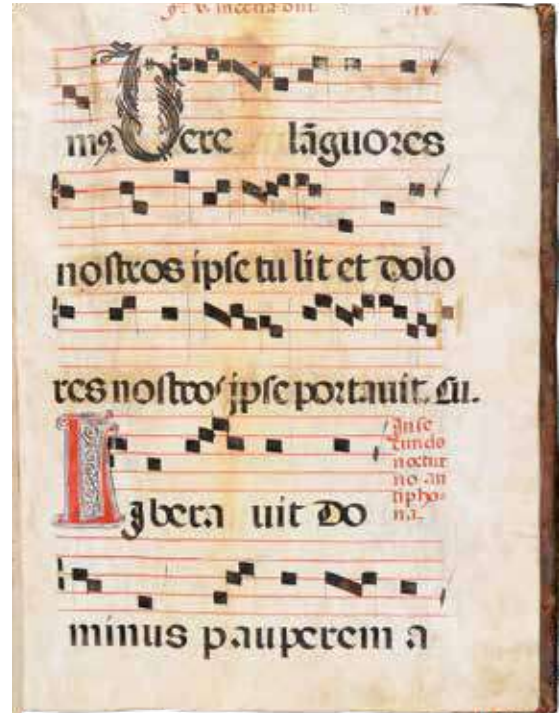 in cena dni.
m⁹ Vere lāguores
nostros ipse tu lit et dolo
res nostros ipse portauit. Cu.
In se
cundo
noctur
no an
tipho
na.
Libera uit Do
minus pauperem a